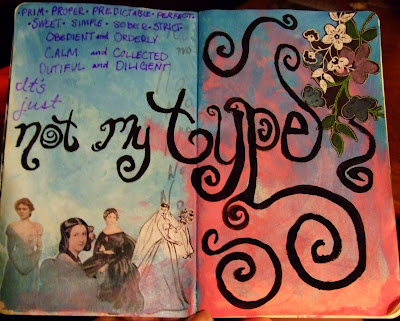 PRIM · PROPER · PREDICTABLE · PERFECT ·
· SWEET · SIMPLE · SOBER · STRICT ·
OBEDIENT and ORDERLY
CALM and COLLECTED
DUTIFUL and DILIGENT
It's
just
not my type